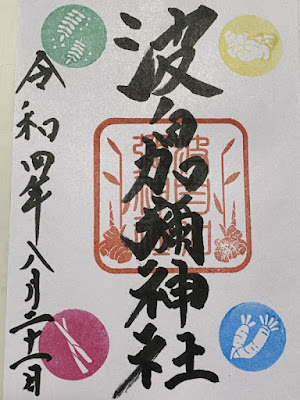 波自加彌神社
令和四年八月二十一日